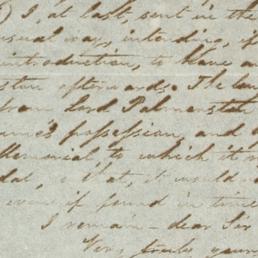 ) I, at last, sent in the
usual way, intending, if
introduction, to leave an
afterwards. The
from Lord Palmerston
possession, and
Memorial to which it
, that, it would
even if found in time
I remain - dear Sir
Very truly your